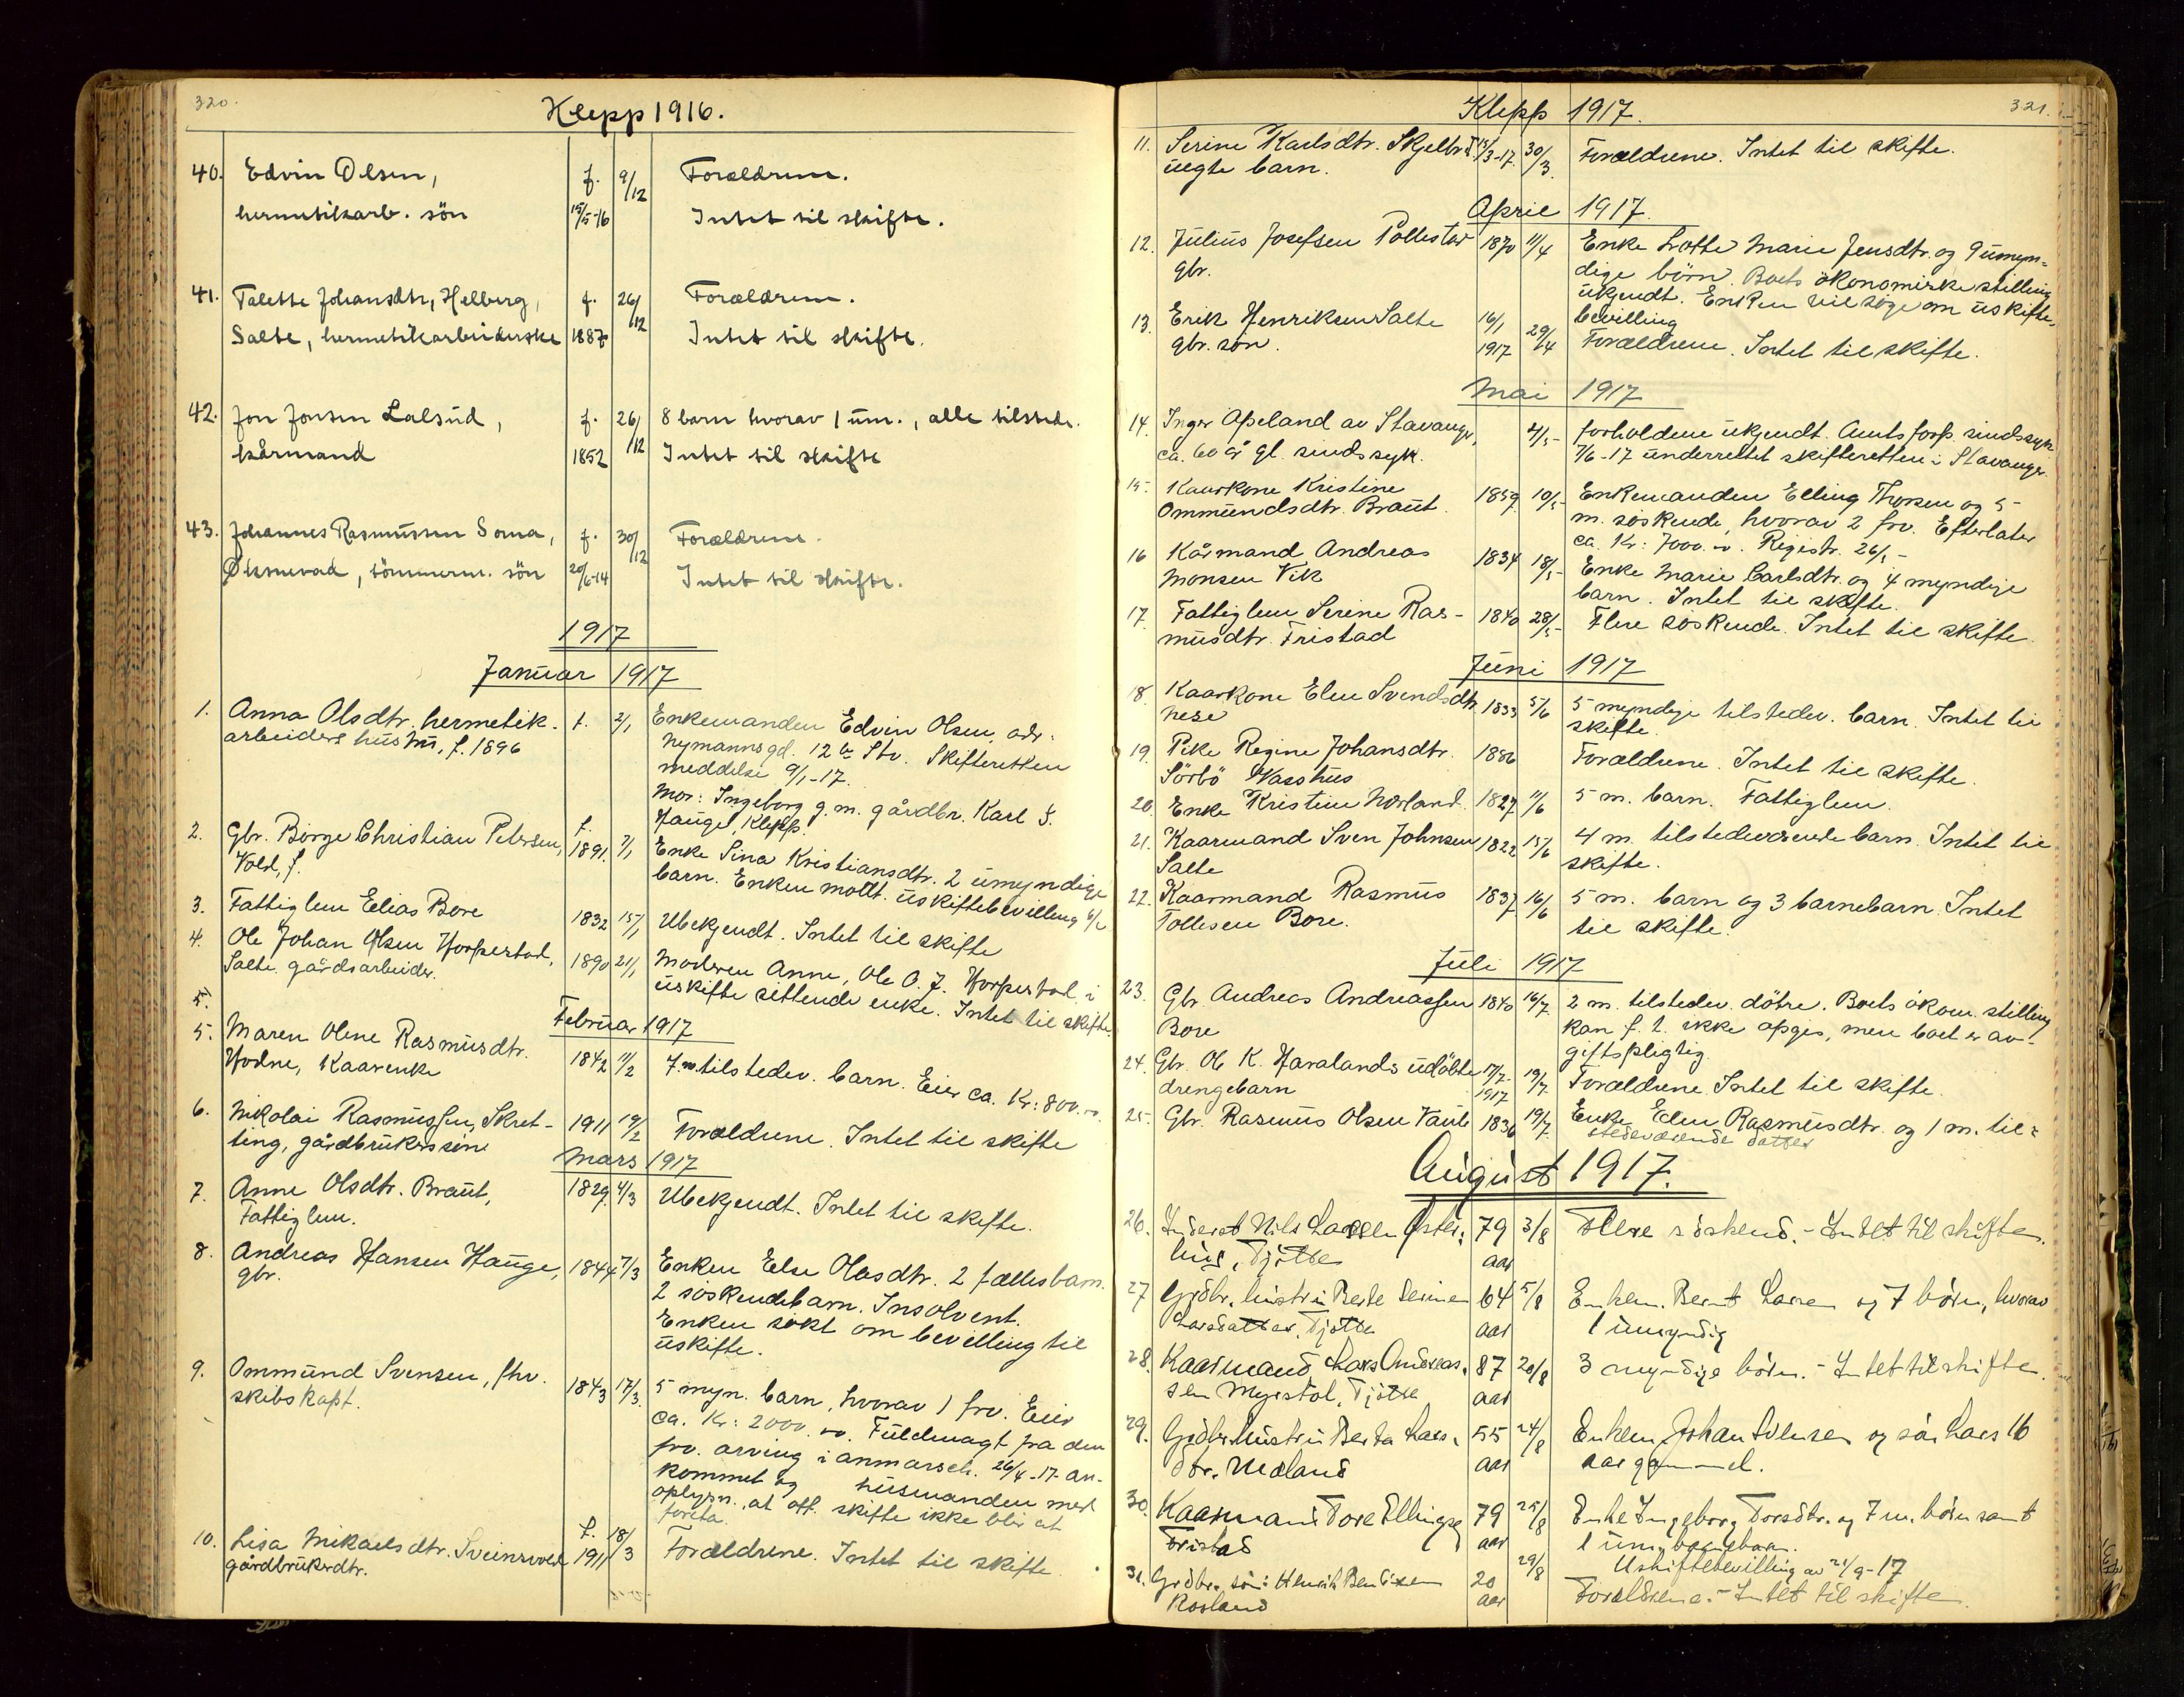 320.
Klepp 1916.
40. Edvin Olsen, f. 9/12 Forældrene.
hermetikarb. sön 15/5-16 Intet til skifte.
41. Talette Johansdtr, Helberg, f. 26/12 Forældrene.
Salte, hermetikarbeiderske 1887 Intet til skifte.
42. Jon Jonsen Lalsud, f. 26/12 8 barn hvorav 1 um., alle tilstede.
kårmand 1852 Intet til skifte
43. Johannes Rasmussen Soma, f. 30/12 Forældrene.
Öksnevad, tömmerm. sön 20/6-14 Intet til skifte.
1917
Januar 1917
1. Anna Olsdtr. hermetik- f. 2/1 Enkemanden Edvin Olsen, adr.
arbeiders hustru, f. 1896 Nymannsgd. 12 b Stv. Skifteretten
meddelse 9/1-17.
Mor: Ingeborg g.m. gårdbr. Karl S.
Hauge, Klepp.
2. Gbr. Börge Christian Petersen, f. 1891. 7/1 Enke Sina Kristiansdtr. 2 umyndige
Vold, f. barn. Enken mottt. uskiftebevilling
3. Fattiglem Elias Bore 1832 15/1 Ubekjendt. Intet til skifte
4. Ole Johan Olsen Horpestad, 1890 21/1 Moderen Anne, Ole O. J. Horpestad i
Salte. gårdsarbeider. uskifte sittende enke. Intet til skifte.
5.
Februar 1917
5. Maren Oline Rasmusdtr. 1842 11/2 7 m tilstedev. barn. Eier ca. Kr: 800.00
Hodne, Kaarenke
6. Nikolai Rasmussen, Skret- 1911 19/2 Forældrene. Intet til skifte
ting, gårdbrukers sön
Mars 1917
7. Anne Olsdtr. Braut, 1829. 4/3 Ubekjendt. Intet til skifte.
Fattiglem.
8. Andreas Hansen Hauge, 1844 7/3 Enken Else Olasdtr. 2 fællesbarn.
gbr. 2 söskendebarn. Insolvent.
Enken sökt om bevilling til
uskifte.
9. Ommund Svensen, fhv. 1843 17/3. 5 myn. barn, hvorav 1 frv. Eier
skibskapt. ca. Kr: 2000.00. Fuldmagt fra den
frv. arving i anmarsch. 26/4-17. an-
kommet og husmanden med
oplysn. at off. skifte ikke blir at
foreta.
10. Lisa Mikaelsdtr. Sveinsvoll f. 1911 18/3 Forældrene. Intet til skifte.
gårdbrukerdtr.
Klepp 1917.
321.
11. Serine Karlsdtr. Skjelbr 13/3-17. 30/3. Forældrene. Intet til skifte.
uegte barn.
April 1917.
12. Julius Josefsen Pollestad 1870 11/4 Enke Lotte Marie Jensdtr. og 9 umyn-
gbr. dige börn. Boets ökonomiske stilling
ukjendt. Enken vil söge om uskifte-
bevilling
13. Erik Henriksen Salte 16/1 1917 29/4 Forældrene. Intet til skifte.
gbr. sön.
Mai 1917
14. Inger Apeland av Stavanger, 2/5- forholdene ukjendt. Amts forp. sindssyk
ca. 60 år gl. sindssyk. 7/6-17 underrettet skifteretten i Stavanger
15. Kaarkone Kristine 1859 10/5- Enkemanden Elling Thorsen og 5-
Ommundsdtr. Braut. m. söskende, hvorav 2 frv. Efterlater
ca. Kr: 7000.00. Registr. 26/5-
16 Kårmand Andreas 1834 18/5- Enke Marie Carlsdtr. og 4 myndige
Monsen Vik barn. Intet til skifte.
17. Fattiglem Serine Ras- 1840 28/5- Flere söskende. Intet til skifte
musdtr. Fristad
Juni 1917
18. Kaarkone Elen Svendsdtr. 1833 5/6 5 myndige tilstedev. barn. Intet til
Nese skifte.
19. Pike Regine Johansdtr. 1886 Forældrene. Intet til skifte.
Sörbö Vasshus
20. Enke Kristine Norland. 1827 11/6 5 m. barn. Fattiglem.
21. Kaarmand Sven Johnsen 1822 15/6 4 m. tilstedeværende barn. Intet til
Salte skifte.
22. Kaarmand Rasmus 1837 16/6 5 m. barn og 3 barnebarn. Intet
Tollesen Bore. til skifte.
Juli 1917
23. Gbr. Andreas Andreassen 1840 16/7. 2 m. tilstedev. dötre. Boets ökon. stilling
Bore kan f. t. ikke opges, men boet er av-
giftspligtig.
24. Gbr. Ole K. Haralands udöbte 17/7 1917 19/7. Forældrene. Intet til skifte.
drengebarn
25. Gbr. Rasmus Olsen Vaule 1836 19/7. Enke Elen Rasmusdtr. og 1 m. til-
stedeværende datter
August 1917.
26. Inderst Nils Larsen Öster- 79 3/8 Flere söskend. - Intet til skifte.
hus, Tjötta aar
27 Grdbr. hustru Berte Serine 64 5/8 Enkem. Bernt Larsen og 7 börn, hvorav
Larsdatter, Tjötta aar 1 umyndig
28. Kaarmand Lars Andreas- 87 20/8 3 myndige börn. - Intet til skifte.
sen Myrstöl, Tjötta aar
29. Grdbr. hustru Berta Lars- 55 24/8 Enkem. Johan Svensen og sön Lars 16
dtr. Mæland aar aar gammel.
30. Kaarmand Tore Ellingsen 79 25/8 Enke Ingeborg Torsdtr. og 7 m. börn samt
Fristad aar 1 um. barnebarn.
Uskiftebevilling av 21/9-17
31. Grdbr. sön: Henrik Bentsen 20 29/8 Forældrene. - Intet til skifte.
Rosland aar